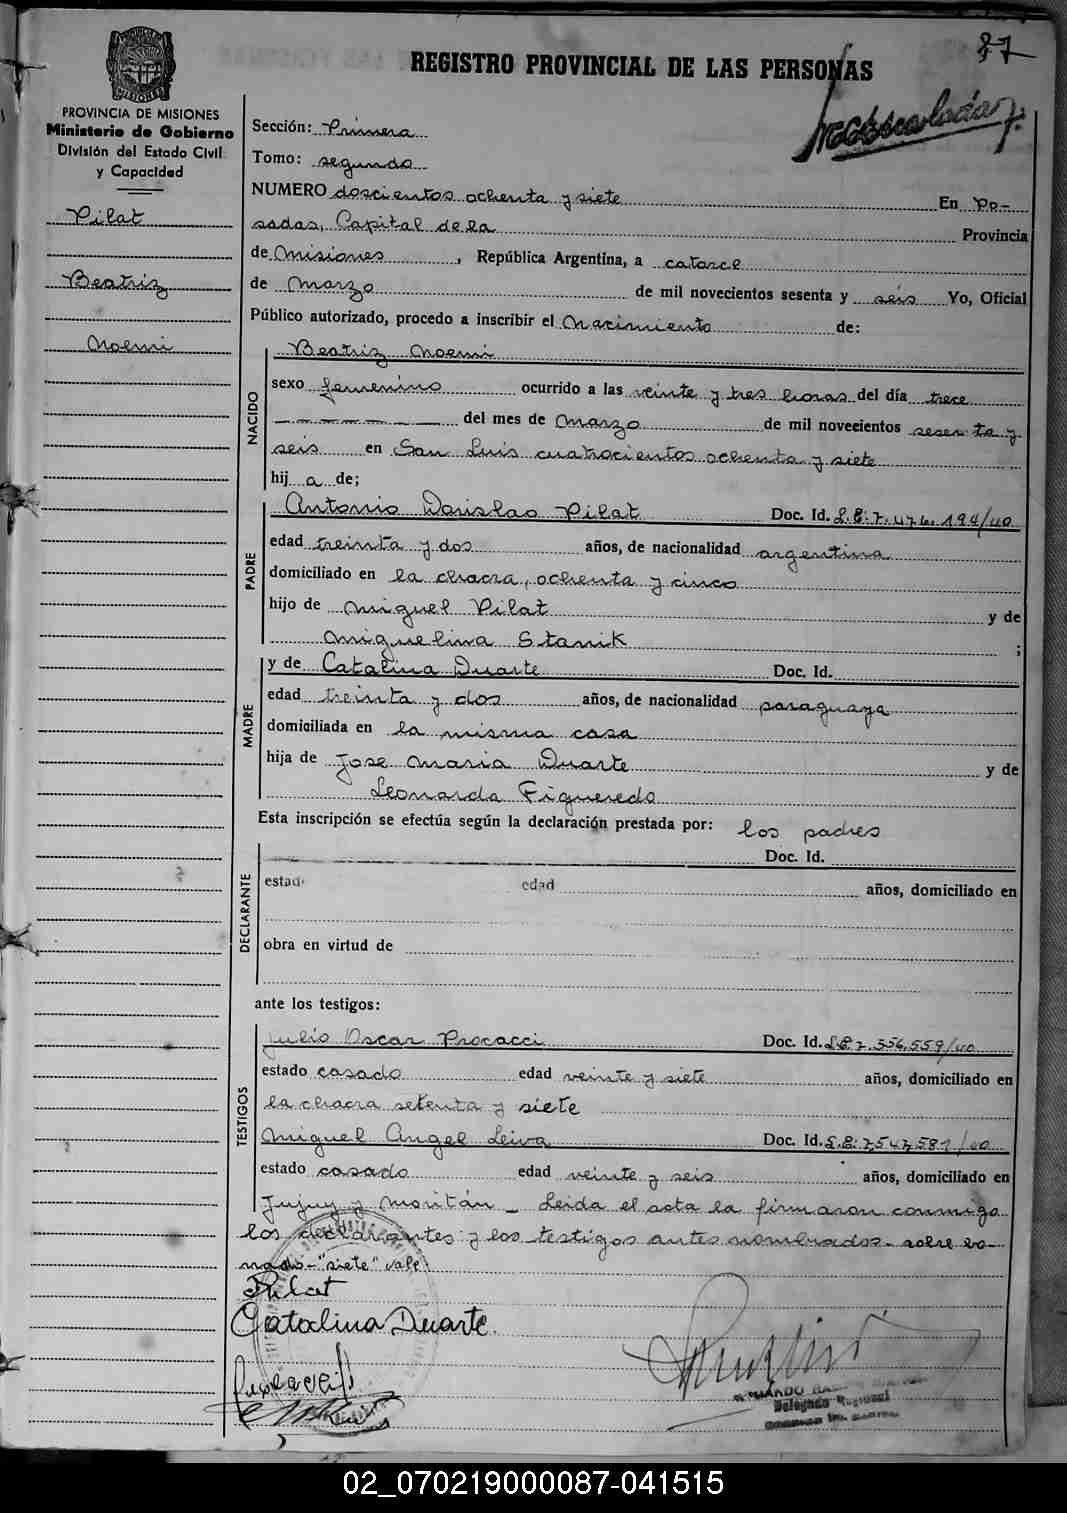 87
REGISTRO PROVINCIAL DE LAS PERSONAS
PROVINCIA DE MISIONES
Ministerio de Gobierno
División del Estado Civil
y Capacidad
Pilat
Beatriz
Noemi
Sección: Primera
Tomo: segundo
NUMERO doscientos ochenta y siete En Po-
sadas, Capital de la Provincia
de Misiones, República Argentina, a catorce
de Marzo de mil novecientos sesenta y seis Yo, Oficial
Público autorizado, procedo a inscribir el Nacimiento de:
NACIDO
Beatriz Noemi
sexo femenino ocurrido a las veinte y tres horas del día trece
del mes de Marzo de mil novecientos sesenta y
seis en San Luis cuatrocientos ochenta y siete
hij a de;
PADRE
Antonio Pilat Doc. Id. L.E: 7.476.194/40
edad treinta y dos años, de nacionalidad argentina
domiciliado en la chacra, ochenta y cinco
hijo de Miguel Pilat y de
Miguelina Stanik ;
MADRE
y de Catalina Duarte Doc. Id.
edad treinta y dos años, de nacionalidad paraguaya
domiciliada en la misma casa
hija de Jose Maria Duarte y de
Leonarda Figueredo
Esta inscripción se efectúa según la declaración prestada por: los padres
DECLARANTE
Doc. Id.
estad edad años, domiciliado en
obra en virtud de
ante los testigos:
TESTIGOS
Julio Oscar Procacci Doc. Id. L.E. 7.356.559/40
estado casado edad veinte y siete años, domiciliado en
la chacra setenta y siete
Miguel Angel Leiva Doc. Id. L.E: 7547581/40
estado casado edad veinte y seis años, domiciliado en
Jujuy y Moritán _ Leida el acta la firmaron conmigo
los declarantes y los testigos antes nombrados - sobre bo-
rrado - "siete" vale
Pilat
Catalina Duarte
Delegado Regional
02_070219000087-041515